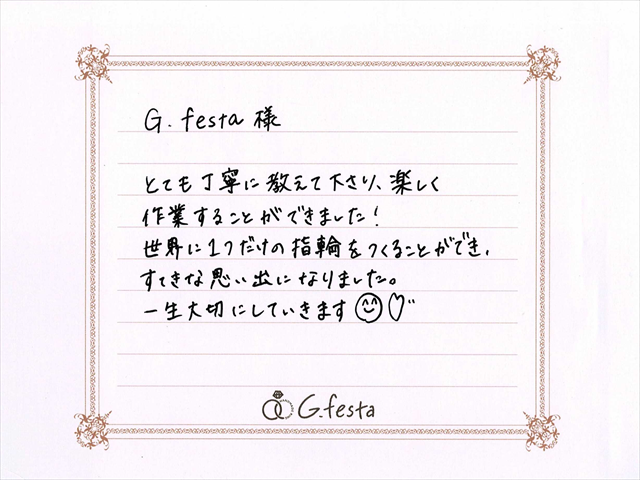 G.festa 様
とても丁寧に教えて下さり、楽しく
作業することができました!
世界に1つだけの指輪をつくることができ、
すてきな思い出になりました。
一生大切にしていきます
G.festa